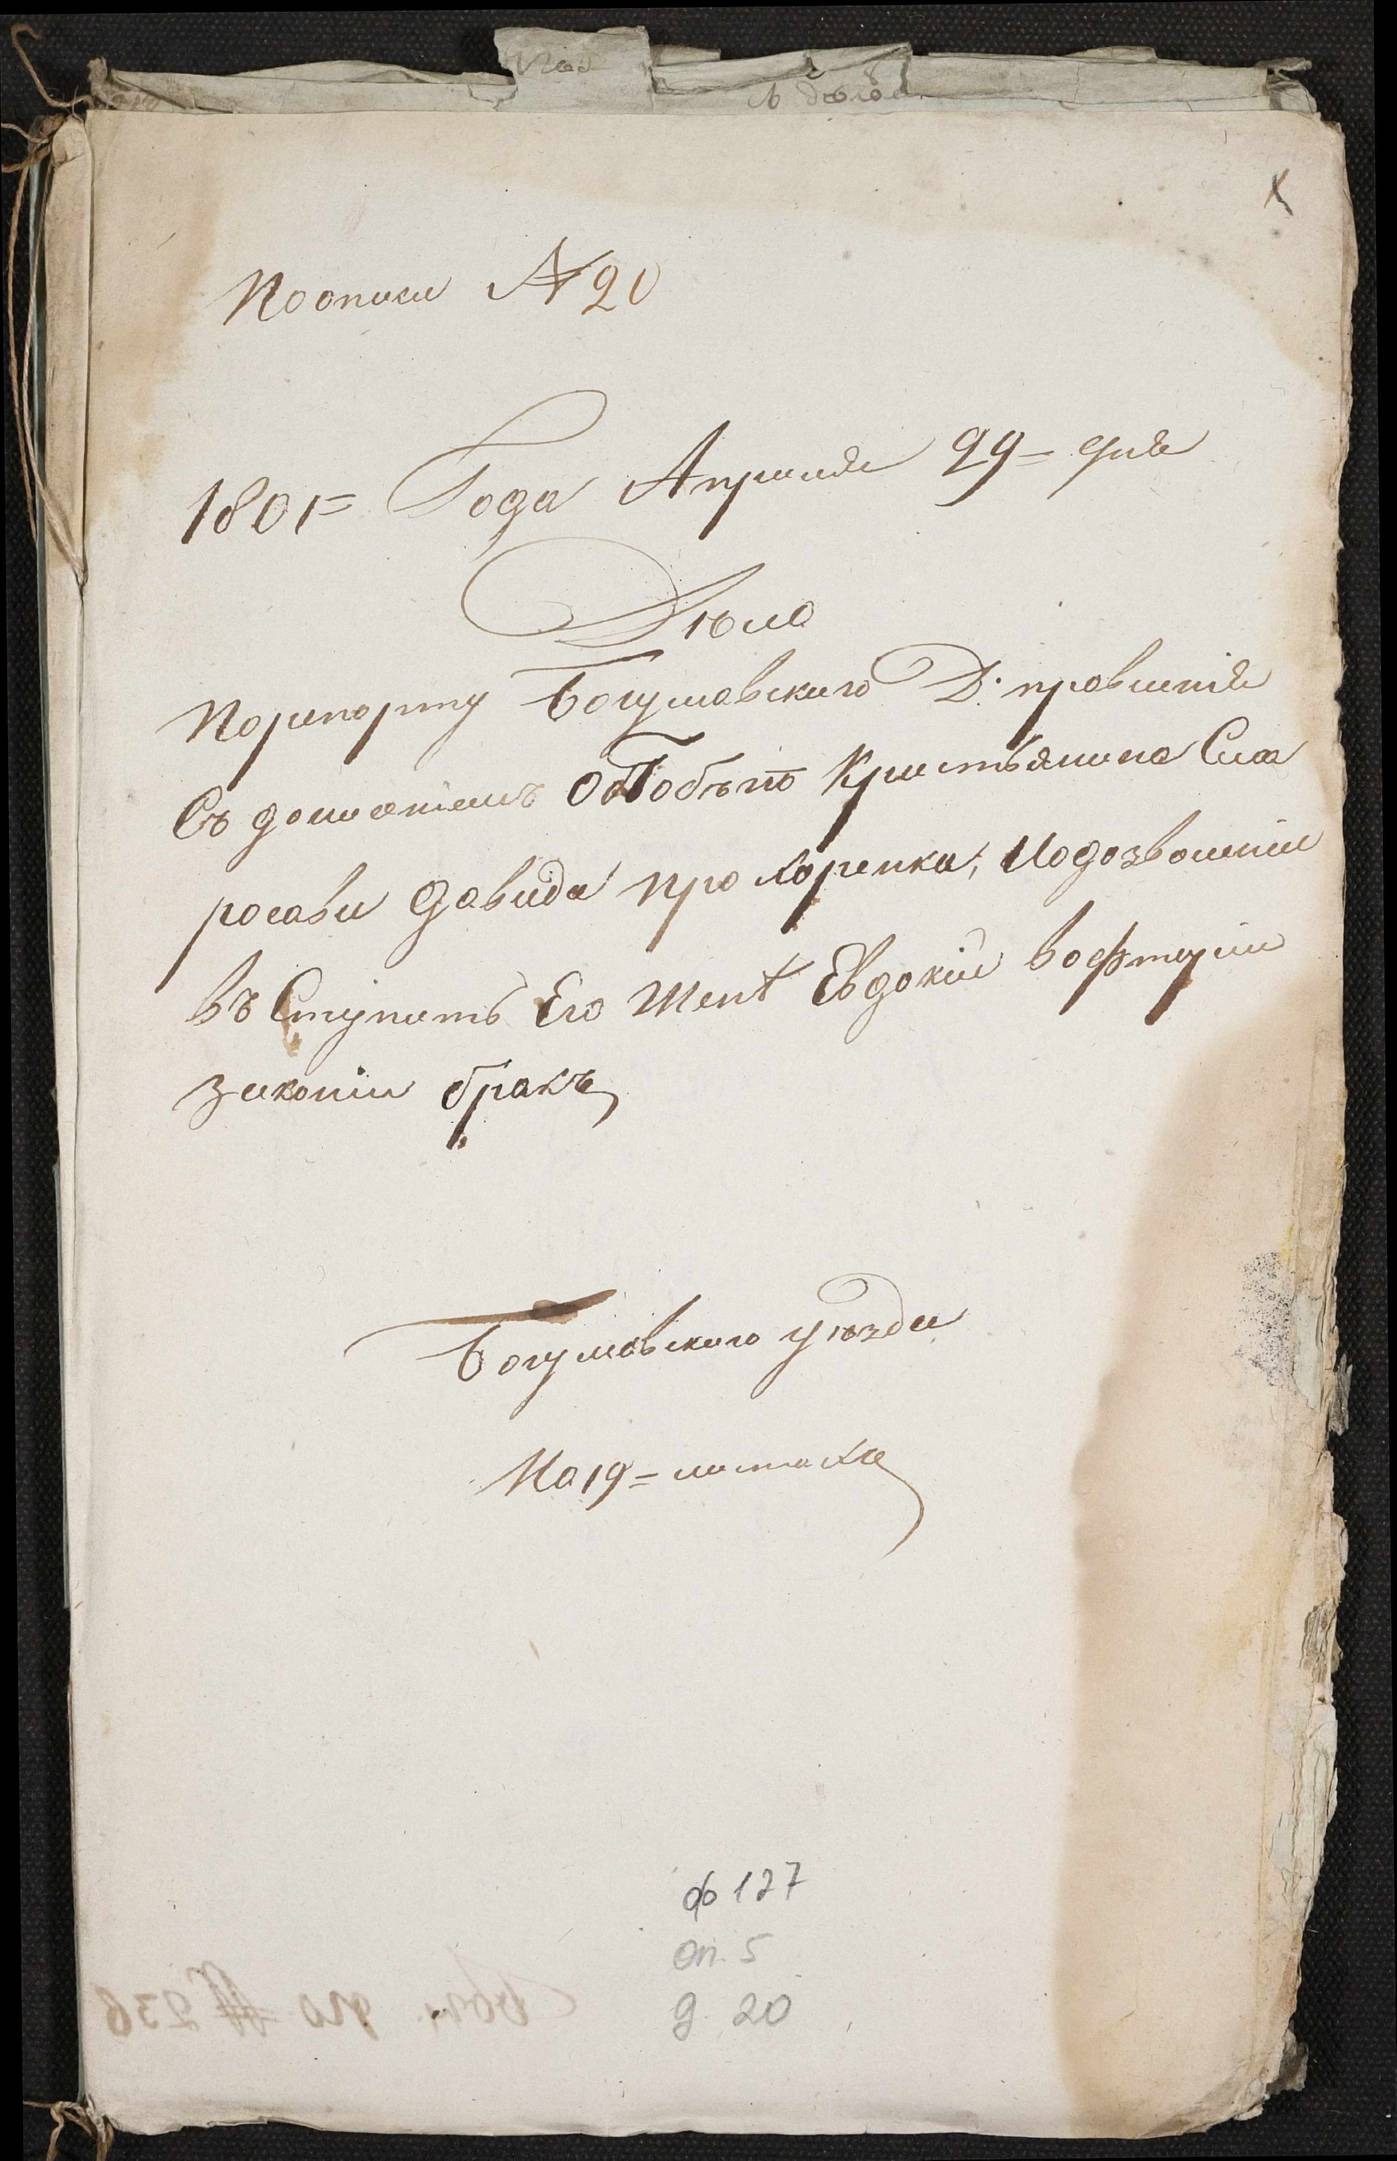 Поописи № 20
1801= Года Априля 29= дня
Дѣло
Порепорту Богуславского Д: правленія
Съ доношениемъ ОбПобѣгѣ Кристьянина Сим
росави Давида прохоренка, Иодозволеніи
въ Ступить Его женѣ Евдокіи во фтурии
законіи бракъ
Богуславского уѣзда
На 19= листахъ
ф 127
оп. 5
д. 20